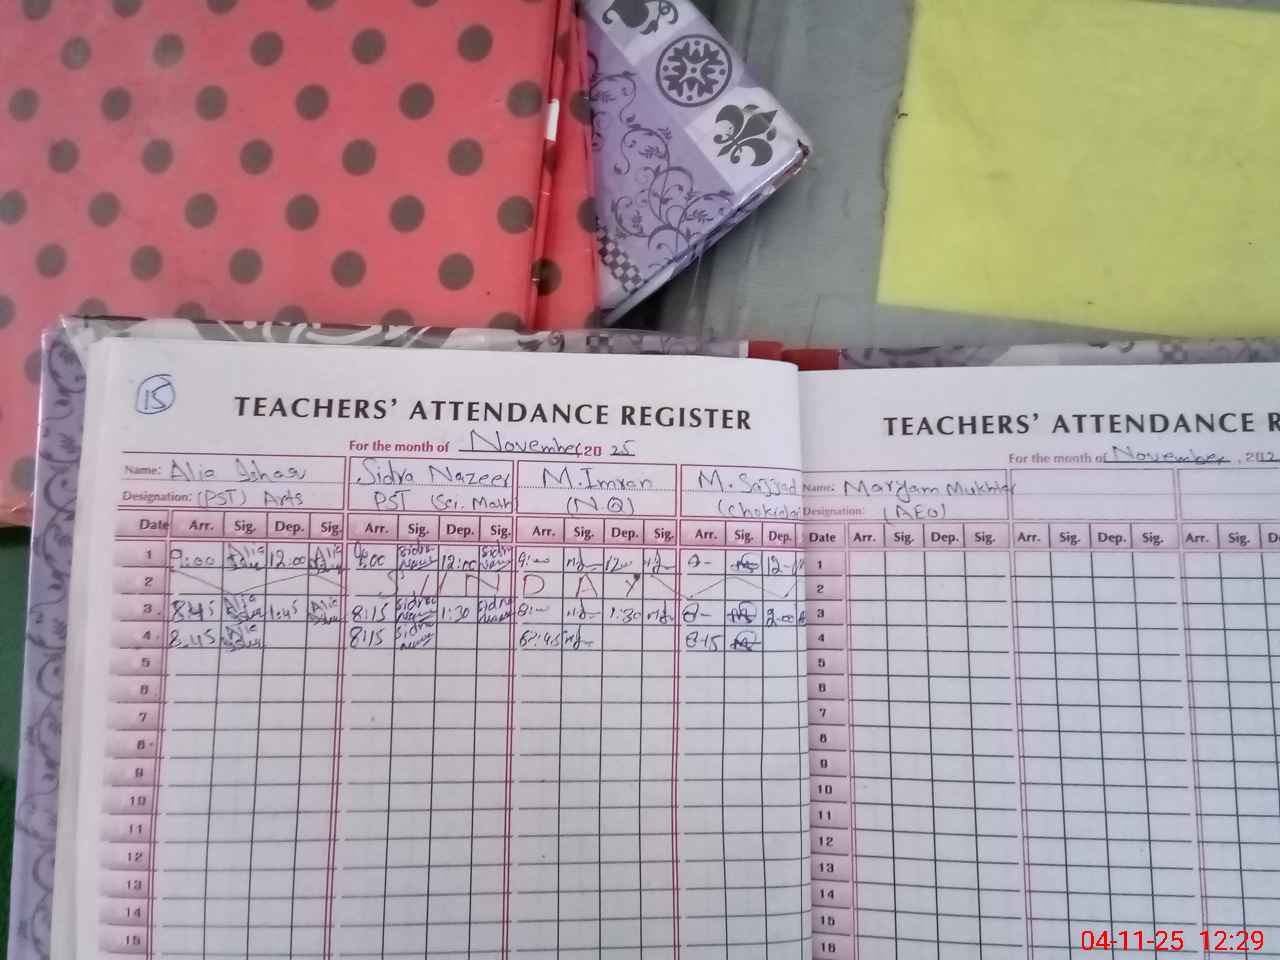 15
TEACHERS' ATTENDANCE REGISTER
For the month of November, 20 25
Name: Alia Sidra Nazeer M.Imran M. Sajjad
Designation: (PST) Arts PST (Sci. Math) (N.Q) (chokidar
Date Arr. Sig. Dep. Sig. Arr. Sig. Dep. Sig. Arr. Sig. Dep. Sig. Arr. Sig. Dep.
1 9:00 Alia 12:00 Alia 9:00 Sidra 12:00 Sidra 9:00 12 9- 12-
2 S U N D A Y
3 8:45 Alia 1:45 Alia 8:15 Sidra 1:30 Sidra 8:00 1:30 8- 2:00
4 8:45 Alia 8:15 Sidra 8:45 8:15
5
6
7
8
9
10
11
12
13
14
15
TEACHERS' ATTENDANCE R
For the month of November, 202
Name: Maryam Mukhtar
Designation: (AEO)
Date Arr. Sig. Dep. Sig. Arr. Sig. D
1
2
3
4
5
6
7
8
9
10
11
12
13
14
15
16
04-11-25 12:29